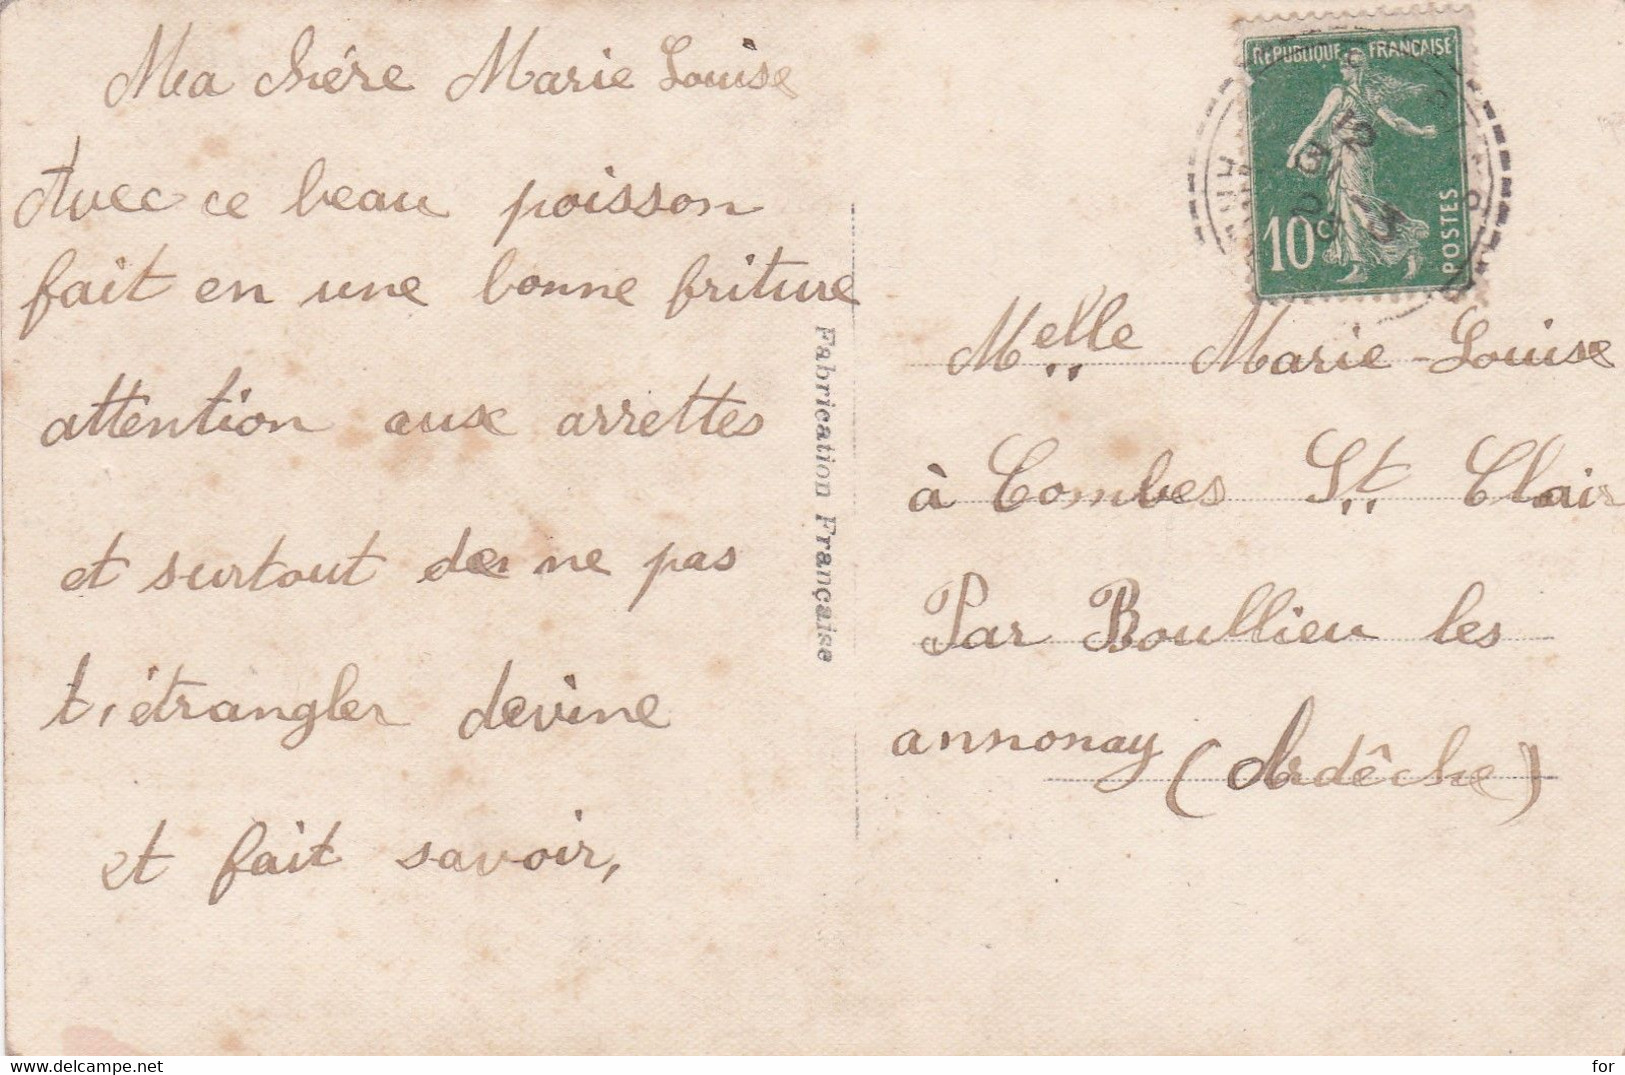 Ma chère Marie Louise
Avec ce beau poisson
fait en une bonne friture
attention aux arrettes
et surtout de ne pas
t'étrangler devine
et fait savoir,
Fabrication Française
REPUBLIQUE FRANÇAISE
10c
POSTES
Melle Marie-Louise
à Combes St Clair
Par Boullieu les
annonay (Ardêche)
for